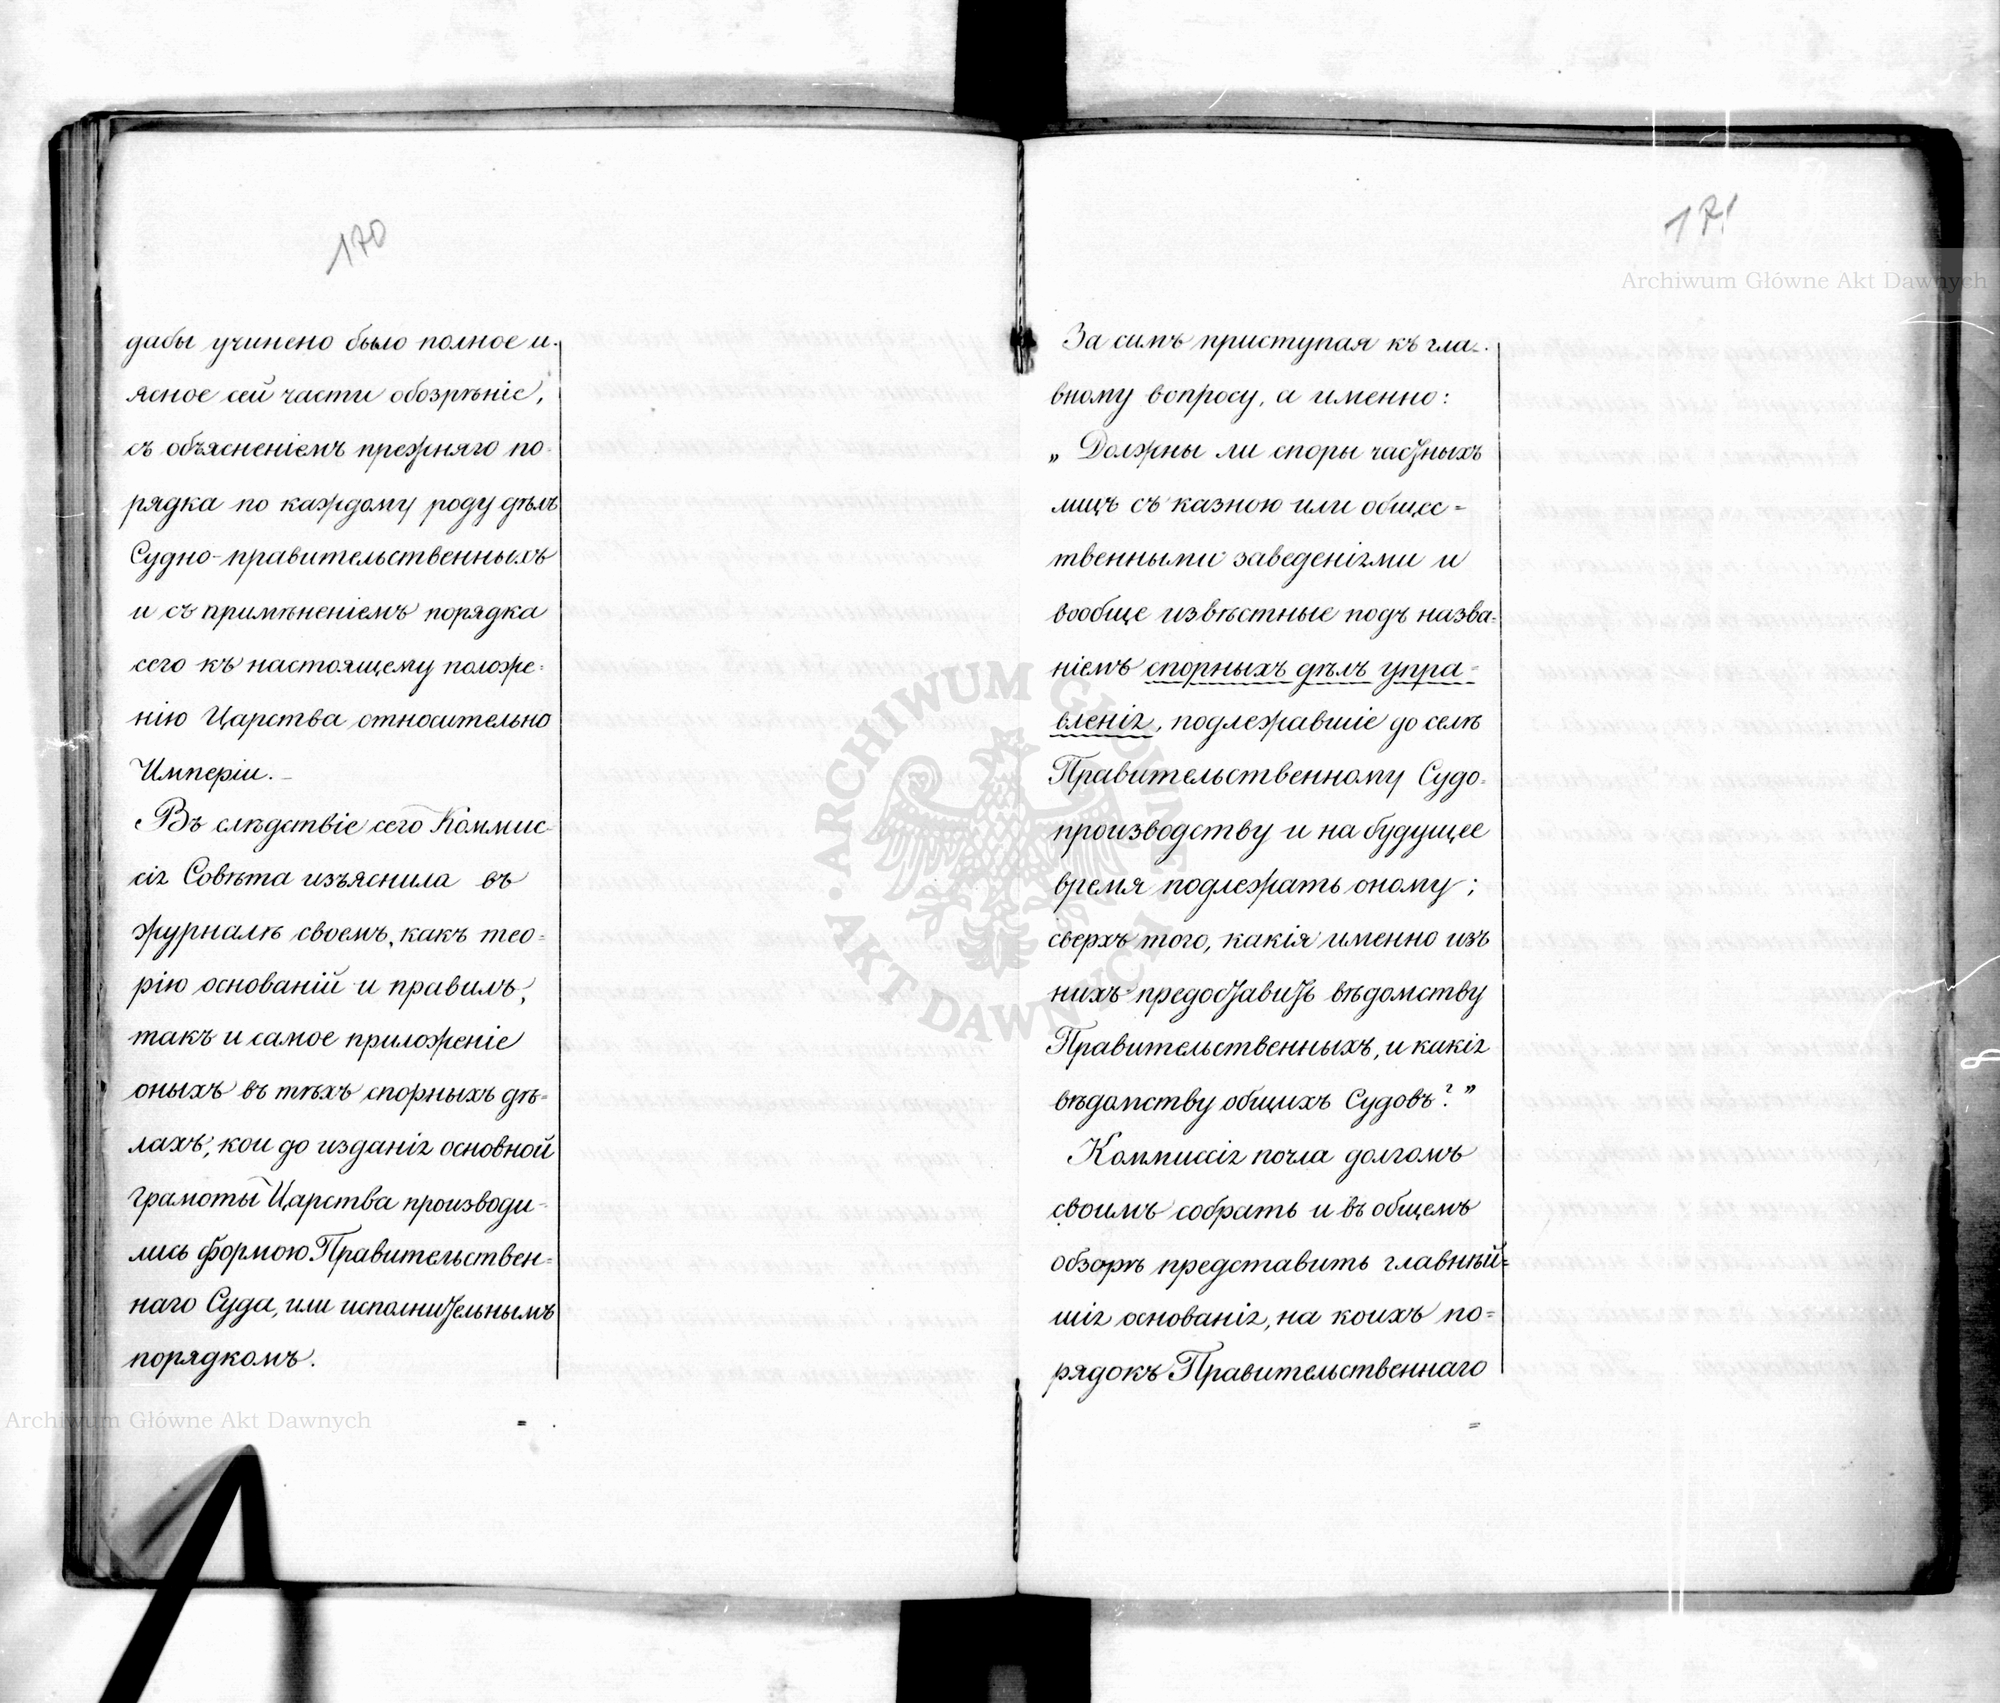 170
дабы учинено было полное и
ясное сей части обозрѣніе,
съ объясненіемъ прежняго по-
рядка по каждому роду дѣлъ
Судно-правительственныхъ
и съ примѣненіемъ порядка
сего къ настоящему положе-
нію Царства относительно
Имперіи. –
Въ слѣдствіе сего Коммис-
сія Совѣта изъяснила въ
журналѣ своемъ, какъ тео-
рію основаній и правилъ,
такъ и самое приложеніе
оныхъ въ тѣхъ спорныхъ дѣ-
лахъ, кои до изданія основной
грамоты Царства производи-
лись формою Правительствен-
наго Суда, или исполнительнымъ
порядкомъ.
=
171
За симъ приступая къ гла-
вному вопросу, а именно:
„Должны ли споры частныхъ
лицъ съ казною или общес=
твенными заведеніями и
вообще извѣстные подъ назва-
ніемъ спорныхъ дѣлъ упра-
вленія, подлежавшіе до селѣ
Правительственному Судо-
производству и на будущее
время подлежать оному;
сверхъ того, какія именно изъ
нихъ предоставить вѣдомству
Правительственныхъ, и какія
вѣдомству общихъ Судовъ?”
Коммиссія почла долгомъ
своимъ собрать и въ общемъ
обзорѣ представить главнѣй=
шія основанія, на коихъ по=
рядокъ Правительственнаго
=
Archiwum Główne Akt Dawnych
Archiwum Główne Akt Dawnych
ARCHIWUM GŁÓWNE AKT DAWNYCH